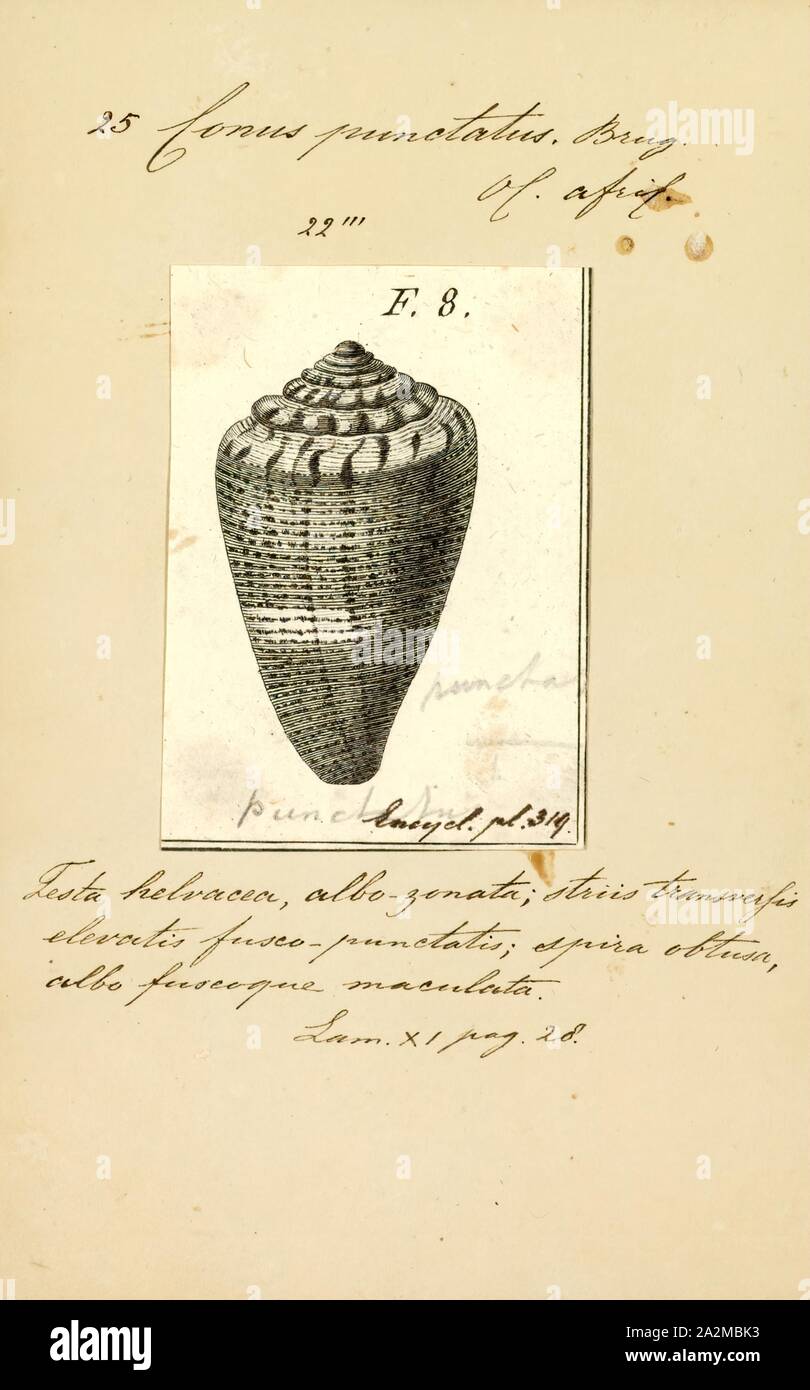 25 Conus punctatus. Brug.
Oc. afric.
22'''
F. 8.
puncta
punct
Encycl. pl. 319.
Testa helvacea, albo-zonata; striis transversis
elevatis fusco-punctatis; spira obtusa,
albo fuscoque maculata.
Lam. XI pag. 28.
alamy
alamy
Image ID: 2A2MBK3
www.alamy.com